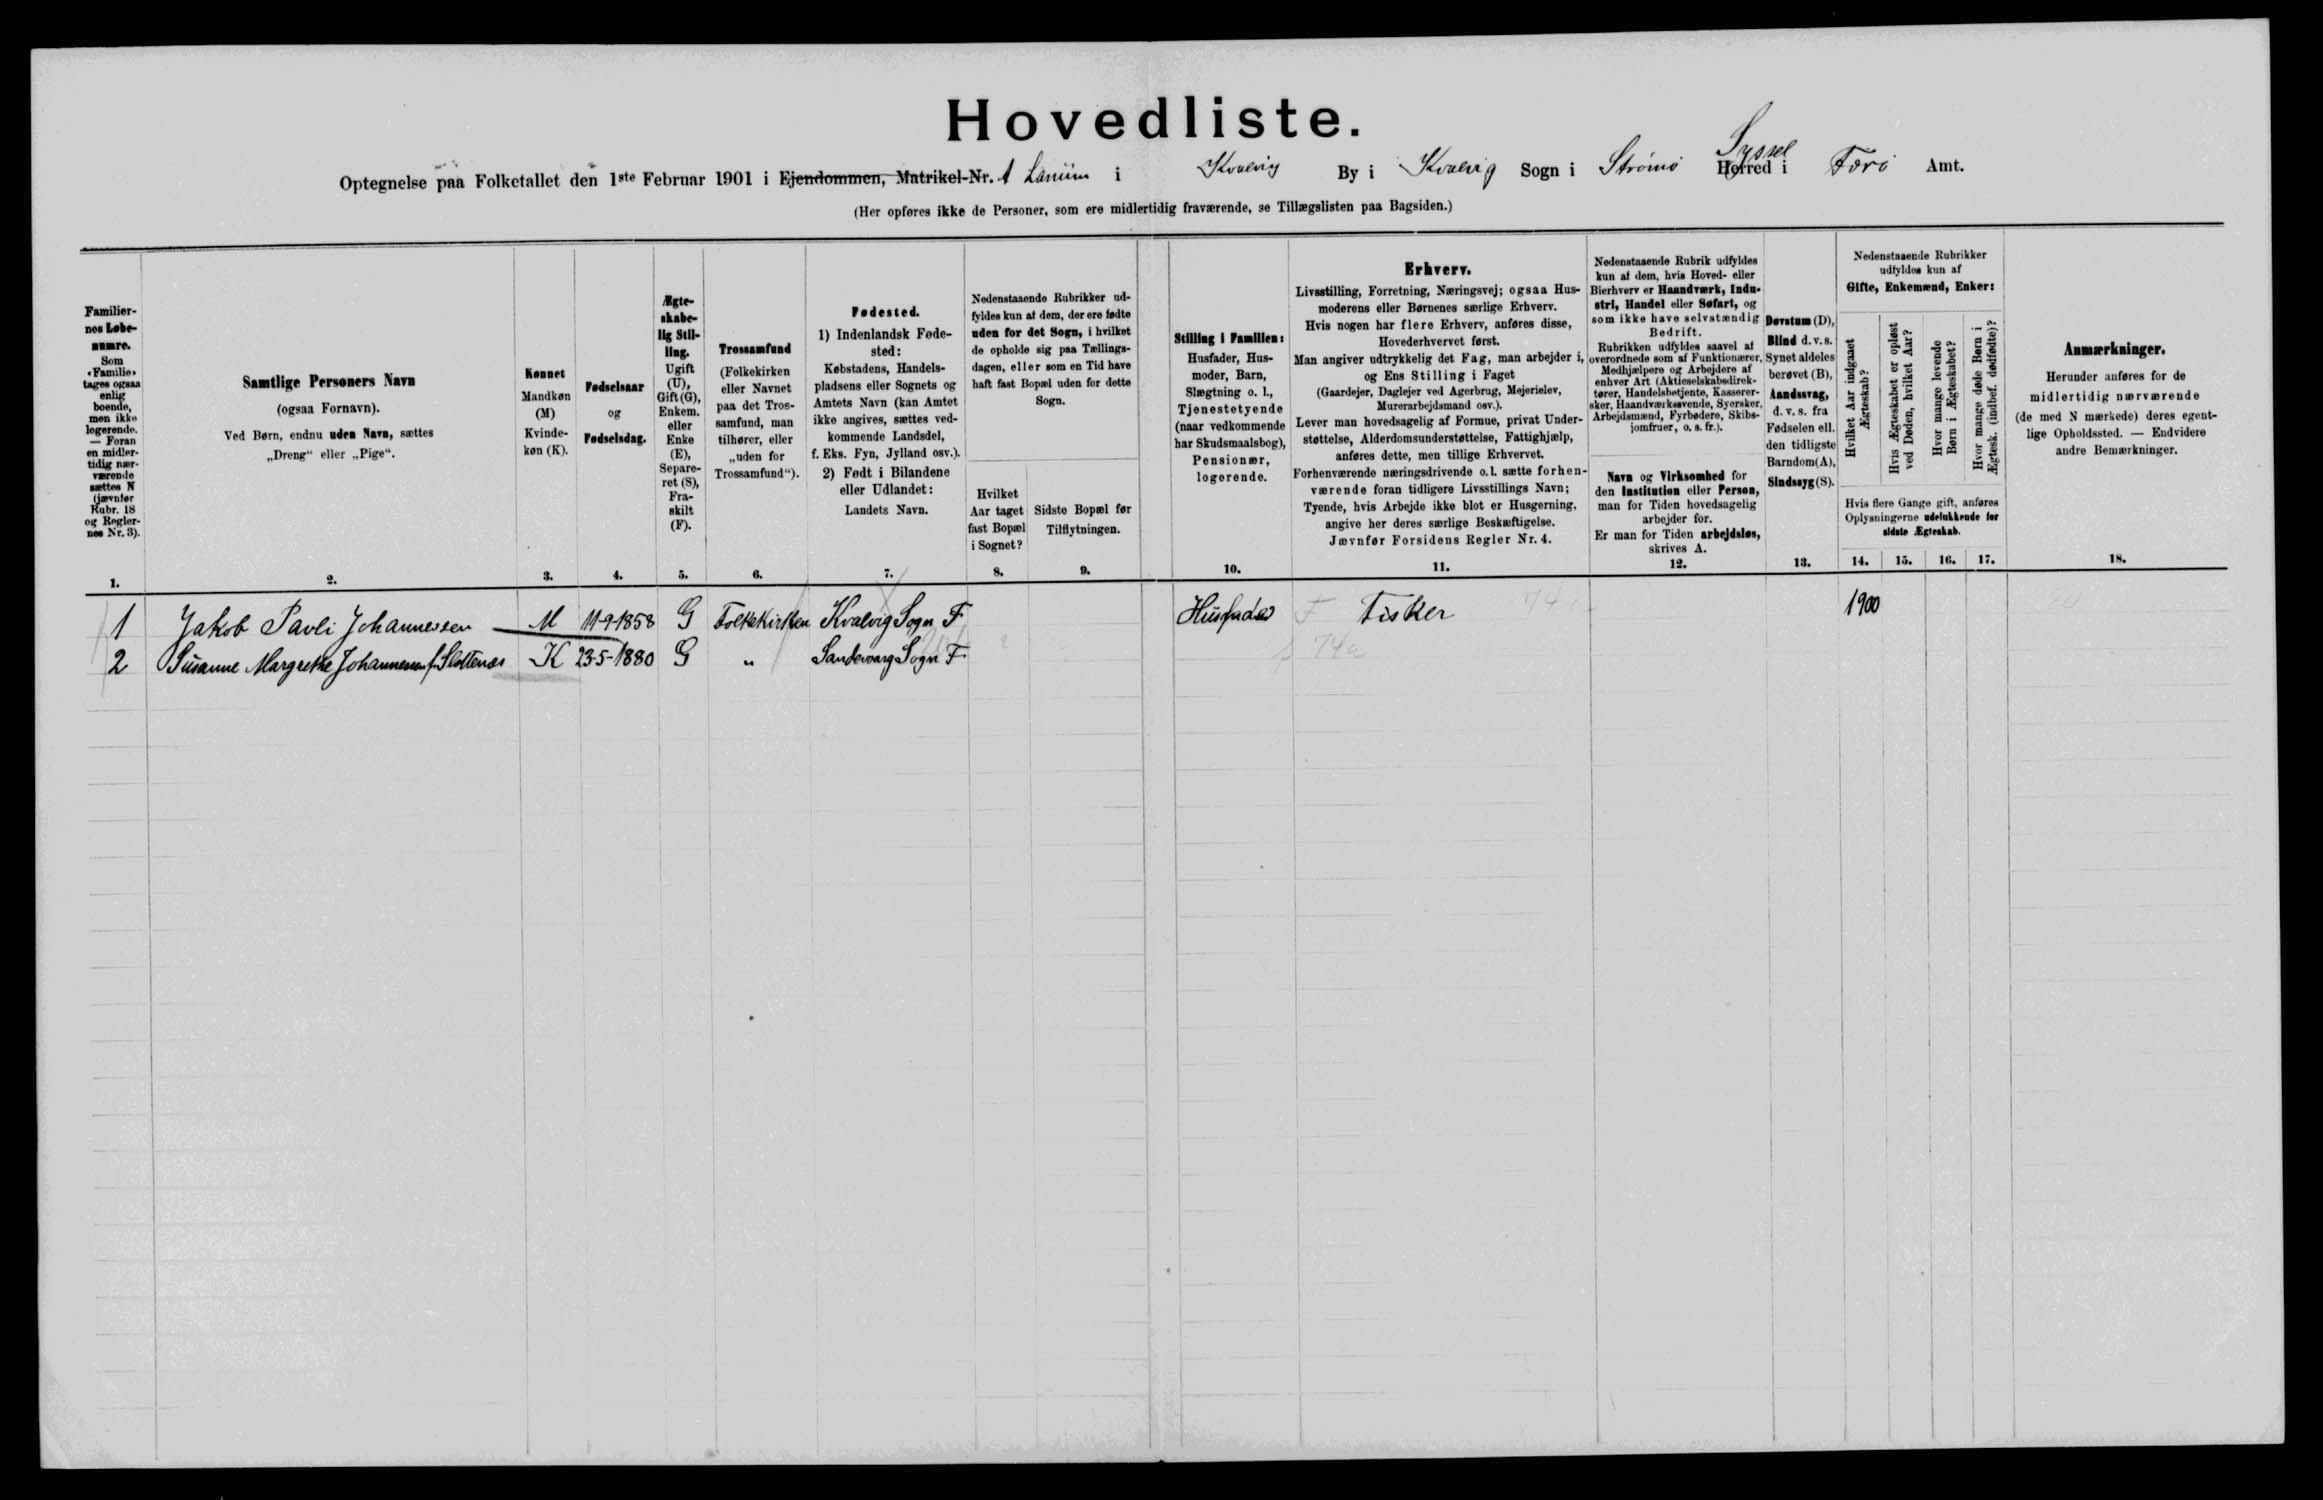 Hovedliste.
Optegnelse paa Folketallet den 1ste Februar 1901 i Ejendommen, Matrikel-Nr. i Kvalvig By i Kvalvig Sogn i Strömö Herred Syssel i Færö Amt.
(Her opføres ikke de Personer, som ere midlertidig fraværende, se Tillægslisten paa Bagsiden.)
Familiernes Løbenumre.
Som «Familie» tages ogsaa enlig boende, men ikke logerende. — Foran en midlertidig nærværende sættes N (jævnfør Rubr. 18 og Reglernes Nr. 3).
1.
Samtlige Personers Navn
(ogsaa Fornavn).
Ved Børn, endnu uden Navn, sættes
„Dreng“ eller „Pige“.
2.
Kønnet
Mandkøn (M)
Kvindekøn (K).
3.
Fødselsaar
og
Fødselsdag.
4.
Ægteskabelig Stilling.
Ugift (U), Gift (G), Enkem. eller Enke (E), Separeret (S), Fraskilt (F).
5.
Trossamfund
(Folkekirken eller Navnet paa det Trossamfund, man tilhører, eller „uden for Trossamfund“).
6.
Fødested.
1) Indenlandsk Fødested:
Købstadens, Handelspladsens eller Sognets og Amtets Navn (kan Amtet ikke angives, sættes vedkommende Landsdel, f. Eks. Fyn, Jylland osv.).
2) Født i Bilandene eller Udlandet:
Landets Navn.
7.
Nedenstaaende Rubrikker udfyldes kun af dem, der ere fødte uden for det Sogn, i hvilket de opholde sig paa Tællingsdagen, eller som en Tid have haft fast Bopæl uden for dette Sogn.
Hvilket Aar taget fast Bopæl i Sognet?
8.
Sidste Bopæl før Tilflytningen.
9.
Stilling i Familien:
Husfader, Husmoder, Barn, Slægtning o. l., Tjenestetyende (naar vedkommende har Skudsmaalsbog), Pensionær, logerende.
10.
Erhverv.
Livsstilling, Forretning, Næringsvej; ogsaa Husmoderens eller Børnenes særlige Erhverv.
Hvis nogen har flere Erhverv, anføres disse, Hovederhvervet først.
Man angiver udtrykkelig det Fag, man arbejder i, og Ens Stilling i Faget
(Gaardejer, Daglejer ved Agerbrug, Mejerielev, Murerarbejdsmand osv.).
Lever man hovedsagelig af Formue, privat Understøttelse, Alderdomsunderstøttelse, Fattighjælp, anføres dette, men tillige Erhvervet.
Forhenværende næringsdrivende o. l. sætte forhenværende foran tidligere Livsstillings Navn;
Tyende, hvis Arbejde ikke blot er Husgerning, angive her deres særlige Beskæftigelse.
Jævnfør Forsidens Regler Nr. 4.
11.
Nedenstaaende Rubrik udfyldes kun af dem, hvis Hoved- eller Bierhverv er Haandværk, Industri, Handel eller Søfart, og som ikke have selvstændig Bedrift.
Rubrikken udfyldes saavel af overordnede som af Funktionærer, Medhjælpere og Arbejdere af enhver Art (Aktieselskabsdirektører, Handelsbetjente, Kasserersker, Haandværkssvende, Syersker, Arbejdsmænd, Fyrbødere, Skibsjomfruer, o. s. fr.).
Navn og Virksomhed for den Institution eller Person, man for Tiden hovedsagelig arbejder for.
Er man for Tiden arbejdsløs, skrives A.
12.
Døvstum (D), Blind d. v. s. Synet aldeles berøvet (B), Aandssvag, d. v. s. fra Fødselen ell. den tidligste Barndom (A), Sindssyg (S).
13.
Nedenstaaende Rubrikker udfyldes kun af Gifte, Enkemænd, Enker:
Hvilket Aar indgaaet Ægteskab?
Hvis Ægteskabet er opløst ved Døden, hvilket Aar?
Hvor mange levende Børn i Ægteskabet?
Hvor mange døde Børn i Ægtesk. (indbef. dødfødte)?
Hvis flere Gange gift, anføres Oplysningerne udelukkende for sidste Ægteskab.
14. 15. 16. 17.
Anmærkninger.
Herunder anføres for de midlertidig nærværende (de med N mærkede) deres egentlige Opholdssted. — Endvidere andre Bemærkninger.
18.
1 Jakob Pavli Johannessen M 11-9-1858 G Folkekirken Kvalvig Sogn F Husfader F Fisker 74 1900
2 Susanne Margrethe Johannesen f. Slettenæs K 23-5-1880 G „ Sandevaag Sogn F f 74a